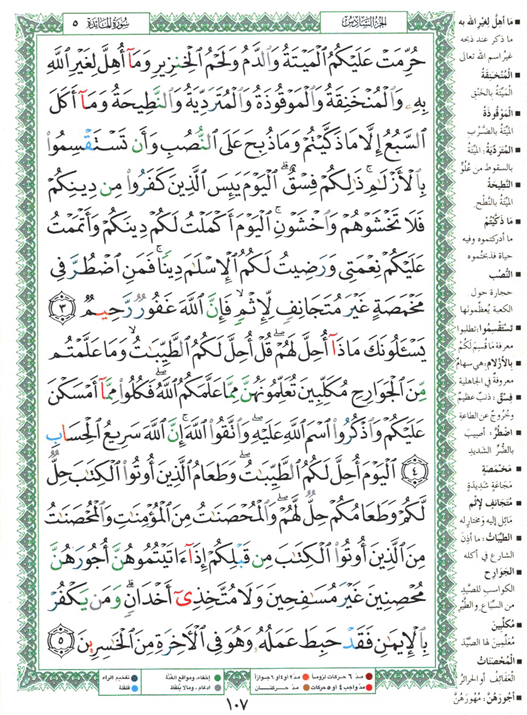 الجزء السادس
سورة المائدة ٥
حُرِّمَتْ عَلَيْكُمُ ٱلْمَيْتَةُ وَٱلدَّمُ وَلَحْمُ ٱلْخِنزِيرِ وَمَآ أُهِلَّ لِغَيْرِ ٱللَّهِ
بِهِۦ وَٱلْمُنْخَنِقَةُ وَٱلْمَوْقُوذَةُ وَٱلْمُتَرَدِّيَةُ وَٱلنَّطِيحَةُ وَمَآ أَكَلَ
ٱلسَّبُعُ إِلَّا مَا ذَكَّيْتُمْ وَمَا ذُبِحَ عَلَى ٱلنُّصُبِ وَأَن تَسْتَقْسِمُوا۟
بِٱلْأَزْلَٰمِ ۚ ذَٰلِكُمْ فِسْقٌ ۗ ٱلْيَوْمَ يَئِسَ ٱلَّذِينَ كَفَرُوا۟ مِن دِينِكُمْ
فَلَا تَخْشَوْهُمْ وَٱخْشَوْنِ ۚ ٱلْيَوْمَ أَكْمَلْتُ لَكُمْ دِينَكُمْ وَأَتْمَمْتُ
عَلَيْكُمْ نِعْمَتِى وَرَضِيتُ لَكُمُ ٱلْإِسْلَٰمَ دِينًا ۚ فَمَنِ ٱضْطُرَّ فِى
مَخْمَصَةٍ غَيْرَ مُتَجَانِفٍ لِّإِثْمٍ ۙ فَإِنَّ ٱللَّهَ غَفُورٌ رَّحِيمٌ ٣
يَسْـَٔلُونَكَ مَاذَآ أُحِلَّ لَهُمْ ۖ قُلْ أُحِلَّ لَكُمُ ٱلطَّيِّبَٰتُ ۙ وَمَا عَلَّمْتُم
مِّنَ ٱلْجَوَارِحِ مُكَلِّبِينَ تُعَلِّمُونَهُنَّ مِمَّا عَلَّمَكُمُ ٱللَّهُ ۖ فَكُلُوا۟ مِمَّآ أَمْسَكْنَ
عَلَيْكُمْ وَٱذْكُرُوا۟ ٱسْمَ ٱللَّهِ عَلَيْهِ ۖ وَٱتَّقُوا۟ ٱللَّهَ ۚ إِنَّ ٱللَّهَ سَرِيعُ ٱلْحِسَابِ
٤ ٱلْيَوْمَ أُحِلَّ لَكُمُ ٱلطَّيِّبَٰتُ ۖ وَطَعَامُ ٱلَّذِينَ أُوتُوا۟ ٱلْكِتَٰبَ حِلٌّ
لَّكُمْ وَطَعَامُكُمْ حِلٌّ لَّهُمْ ۖ وَٱلْمُحْصَنَٰتُ مِنَ ٱلْمُؤْمِنَٰتِ وَٱلْمُحْصَنَٰتُ
مِنَ ٱلَّذِينَ أُوتُوا۟ ٱلْكِتَٰبَ مِن قَبْلِكُمْ إِذَآ ءَاتَيْتُمُوهُنَّ أُجُورَهُنَّ
مُحْصِنِينَ غَيْرَ مُسَٰفِحِينَ وَلَا مُتَّخِذِىٓ أَخْدَانٍ ۗ وَمَن يَكْفُرْ
بِٱلْإِيمَٰنِ فَقَدْ حَبِطَ عَمَلُهُۥ وَهُوَ فِى ٱلْءَاخِرَةِ مِنَ ٱلْخَٰسِرِينَ ٥
ما أهل لغير الله به
ما ذكر عند ذبحه
غير اسم الله تعالى
المنخنقة
الميتة بالخنق
الموقوذة
الميتة بالضرب
المتردية: الميتة
بالسقوط من علو
النطيحة
الميتة بالنطح
ما ذكيتم
ما أدركتموه وفيه
حياة فذبحتموه
النصب
حجارة حول
الكعبة يعظمونها
تستقسموا: تطلبوا
معرفة ما قسم لكم
بالأزلام: هي سهام
معروفة في الجاهلية
فسق: ذنب عظيم
وخروج عن الطاعة
اضطر: أصيب
بالضر الشديد
مخمصة
مجاعة شديدة
متجانف لإثم
مائل إليه ومختار له
الطيبات: ما أذن
الشارع في أكله
الجوارح
الكواسب للصيد
من السباع والطير
مكلبين
معلمين لها الصيد
المحصنات
العفائف أو الحرائر
أجورهن: مهورهن
مد ٦ حركات لزوما
مد ٢ أو ٤ أو ٦ جوازا
إخفاء، ومواقع الغنة
تفخيم الراء
مد واجب ٤ أو ٥ حركات
مد حركتان
ادغام، وما لا يلفظ
قلقلة
١٠٧